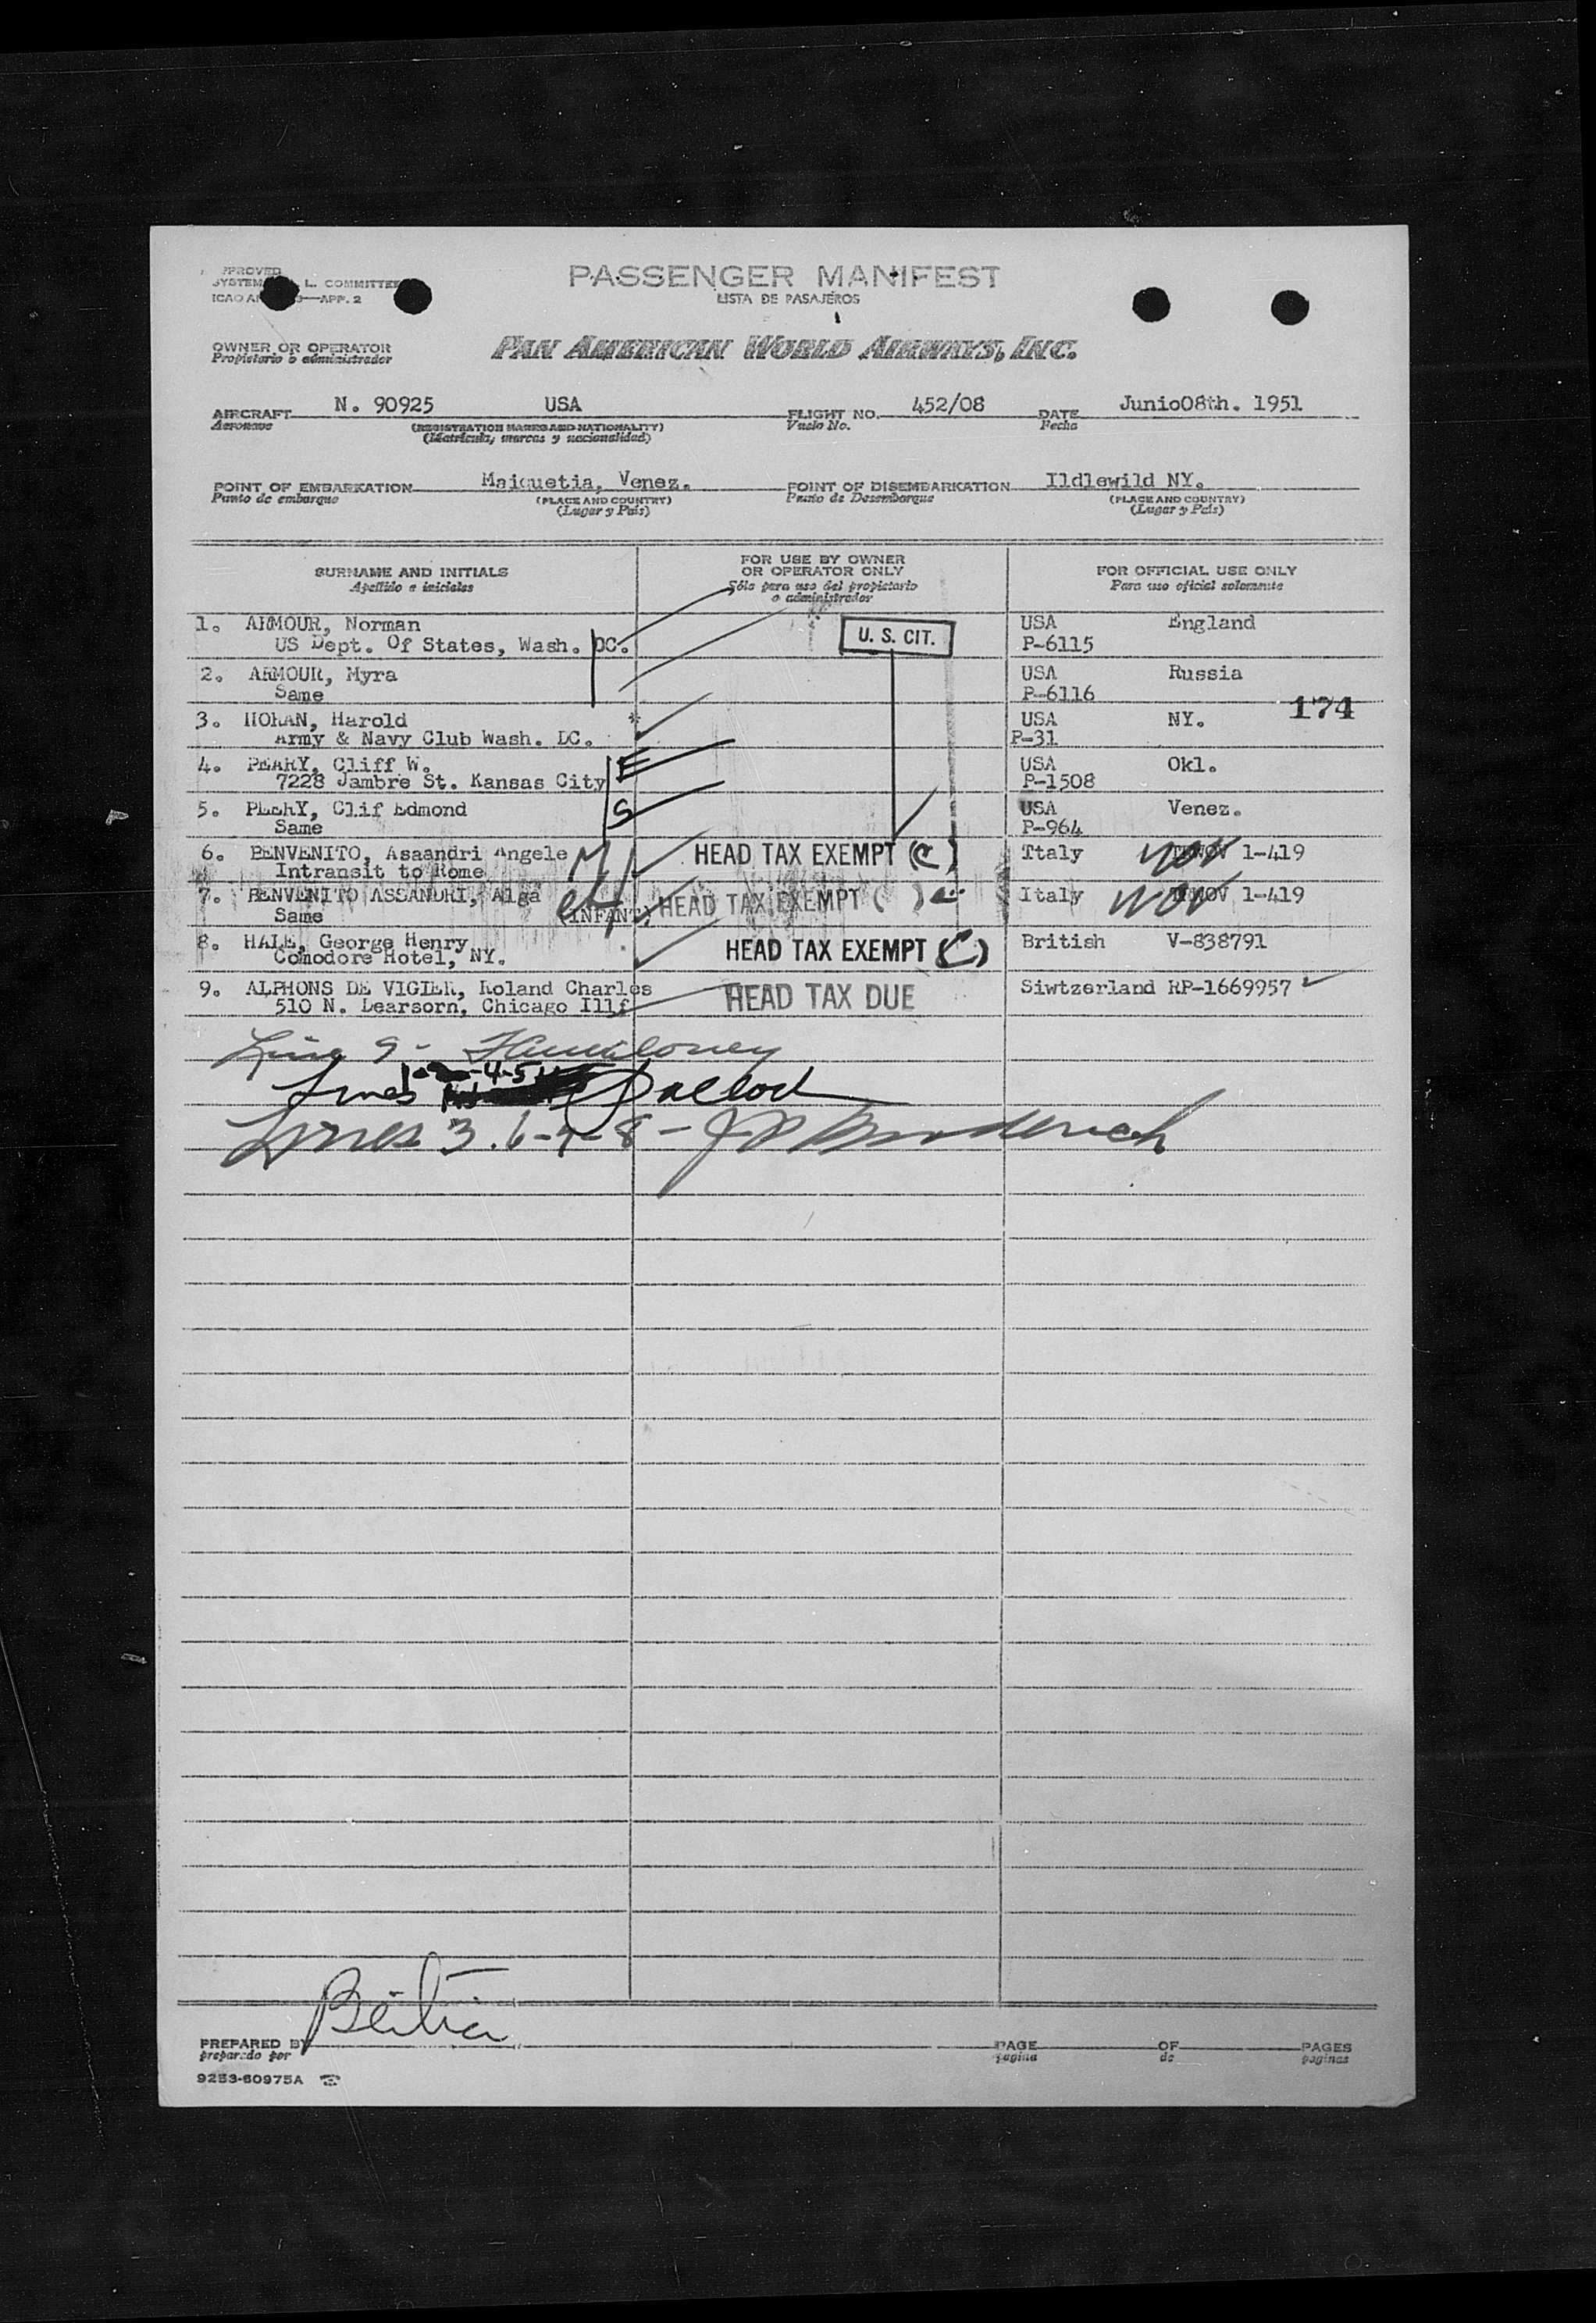 PASSENGER MANIFEST
LISTA DE PASAJEROS
L. COMMITTEE
APP. 2
OWNER OR OPERATOR
Propietario o administrador
PAN AMERICAN WORLD AIRWAYS, INC.
AIRCRAFT N. 90925 USA FLIGHT NO. 452/08 DATE Junio08th. 1951
Aeronave (REGISTRATION MARKS AND NATIONALITY) Vuelo No. Fecha
(Matricula, marcas y nacionalidad)
POINT OF EMBARKATION Maiquetia, Venez. POINT OF DISEMBARKATION Ildlewild NY.
Punto de embarque (PLACE AND COUNTRY) Punto de Desembarque (PLACE AND COUNTRY)
(Lugar y País) (Lugar y País)
SURNAME AND INITIALS FOR USE BY OWNER OR OPERATOR ONLY FOR OFFICIAL USE ONLY
Apellido e iniciales Sólo para uso del propietario o administrador Para uso oficial solamente
1. ARMOUR, Norman USA England
US Dept. Of States, Wash. DC. U. S. CIT. P-6115
2. ARMOUR, Myra USA Russia
Same P-6116
174
3. HORAN, Harold * USA NY.
Army & Navy Club Wash. DC. P-31
4. PEARY, Cliff W. E USA Okl.
7228 Jambre St. Kansas City P-1508
5. PEERY, Clif Edmond S USA Venez.
Same P-964
6. BENVENITO, Asaandri Angele M HEAD TAX EXEMPT (C) Ttaly 1-419
Intransit to Rome
7. BENVENITO ASSANDRI, Alga HEAD TAX EXEMPT ( ) Italy 1-419
Same (INFANT)
8. HALE, George Henry HEAD TAX EXEMPT (C) British V-838791
Comodore Hotel, NY.
9. ALPHONS DE VIGIER, Roland Charles HEAD TAX DUE Siwtzerland RP-1669957
510 N. Dearsorn, Chicago Illf
Line 9 -
Lines 4-5
Lines 3. 6-7-8 -
PREPARED BY PAGE OF PAGES
preparado por pagina de paginas
9253-60975A